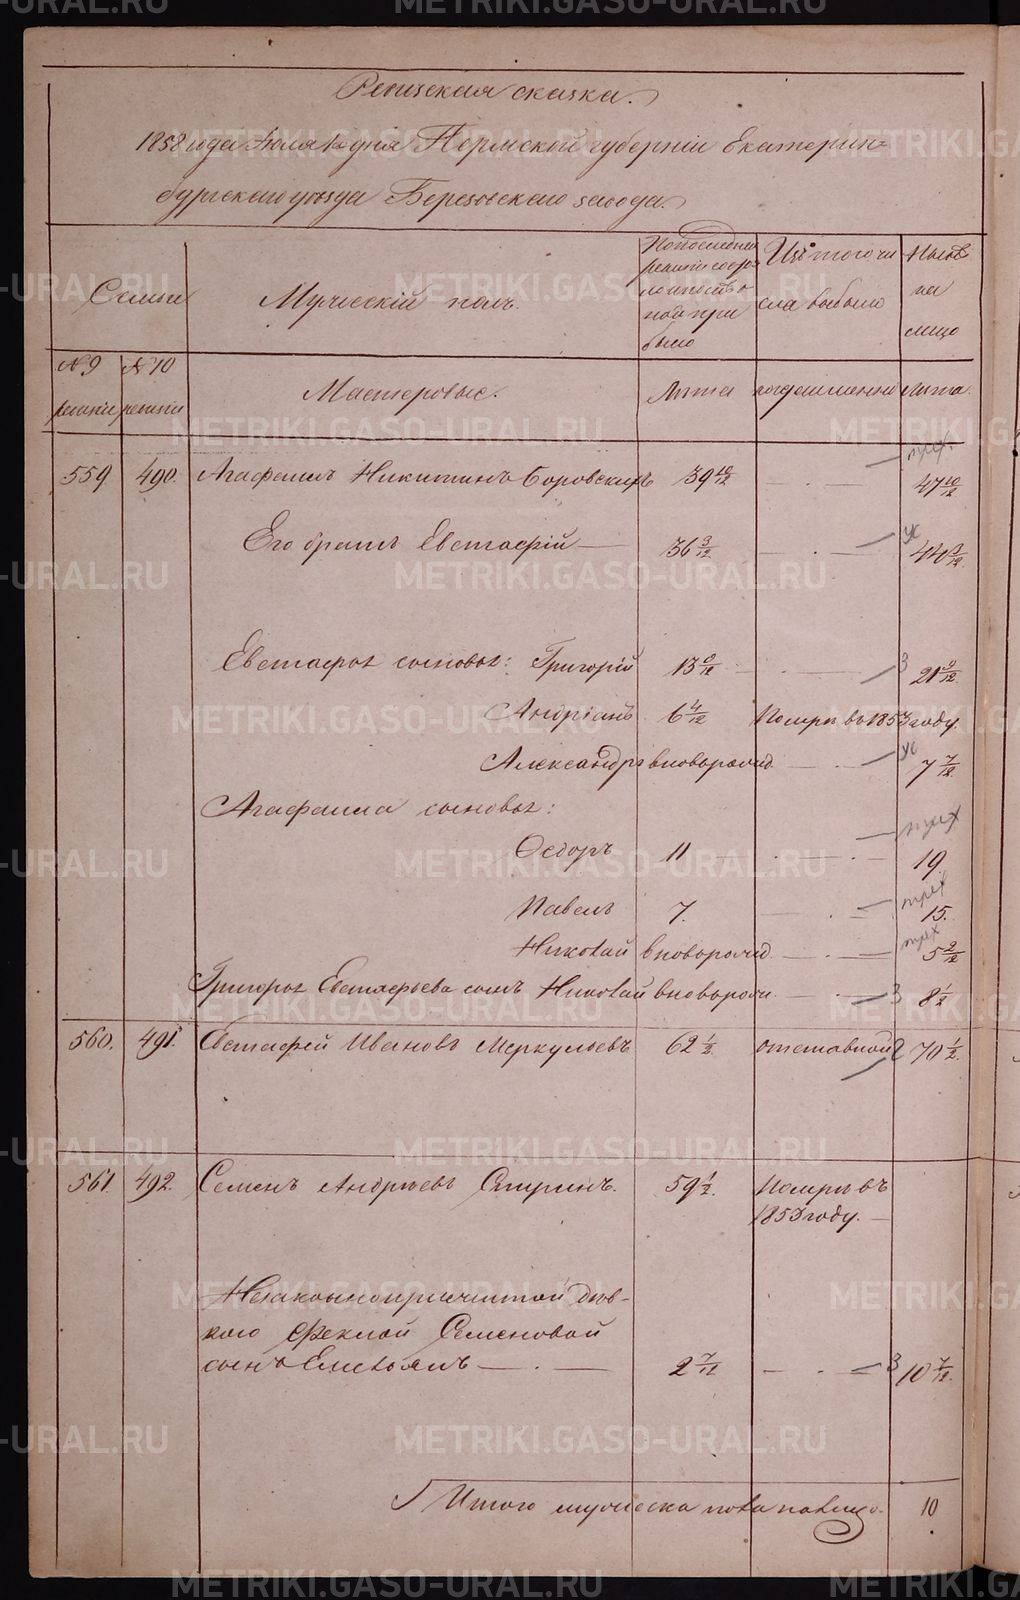 METRIKI.GASO-URAL.RU
Ревизская сказка.
1858 года Июля дня Пермской губернiи Екатерин=
бургскаго уѣзда Березовскаго завода.
Семьи
Мужескiй полъ.
По последней ревизiи состояло и после того прибыло
Изъ того числа выбыло
Ныне на лицо
№ 9 ревизiи
№ 10 ревизiи
Мастеровые.
Лѣта
Когда именно
Лѣта.
559 490. Агафаилъ Никитинъ Боровскихъ 39 10/12 — . — 47 10/12
Его братъ Евстафiй — 36 3/12 — . — 44 3/12
Евстафья сыновья: Григорiй 13 9/12 — . — 3 21 9/12
Андрiанъ 6 4/12 Померъ въ 1853 году.
Александръ вноворожд. — . — 7 7/12
Агафаила сыновья:
Ѳедоръ 11 — . — 19
Павелъ 7. — . — 15.
Николай вноворожд. — . — 5 2/12
Григорья Евстафьева сынъ Николай вноворожд. — . — 3 8 1/2
560. 491. Евстафей Ивановъ Меркульевъ 62 1/2 отставной 70 1/2
561. 492. Семенъ Андрѣевъ Спиринъ. 59 1/2. Померъ въ
1853 году. —
Незаконноприжитой дѣв-
кою Феклой Семеновой
сынъ Емельянъ — . — 2 7/12 — . — 3 10 7/12
Итого мужеска пола на лицо. 10